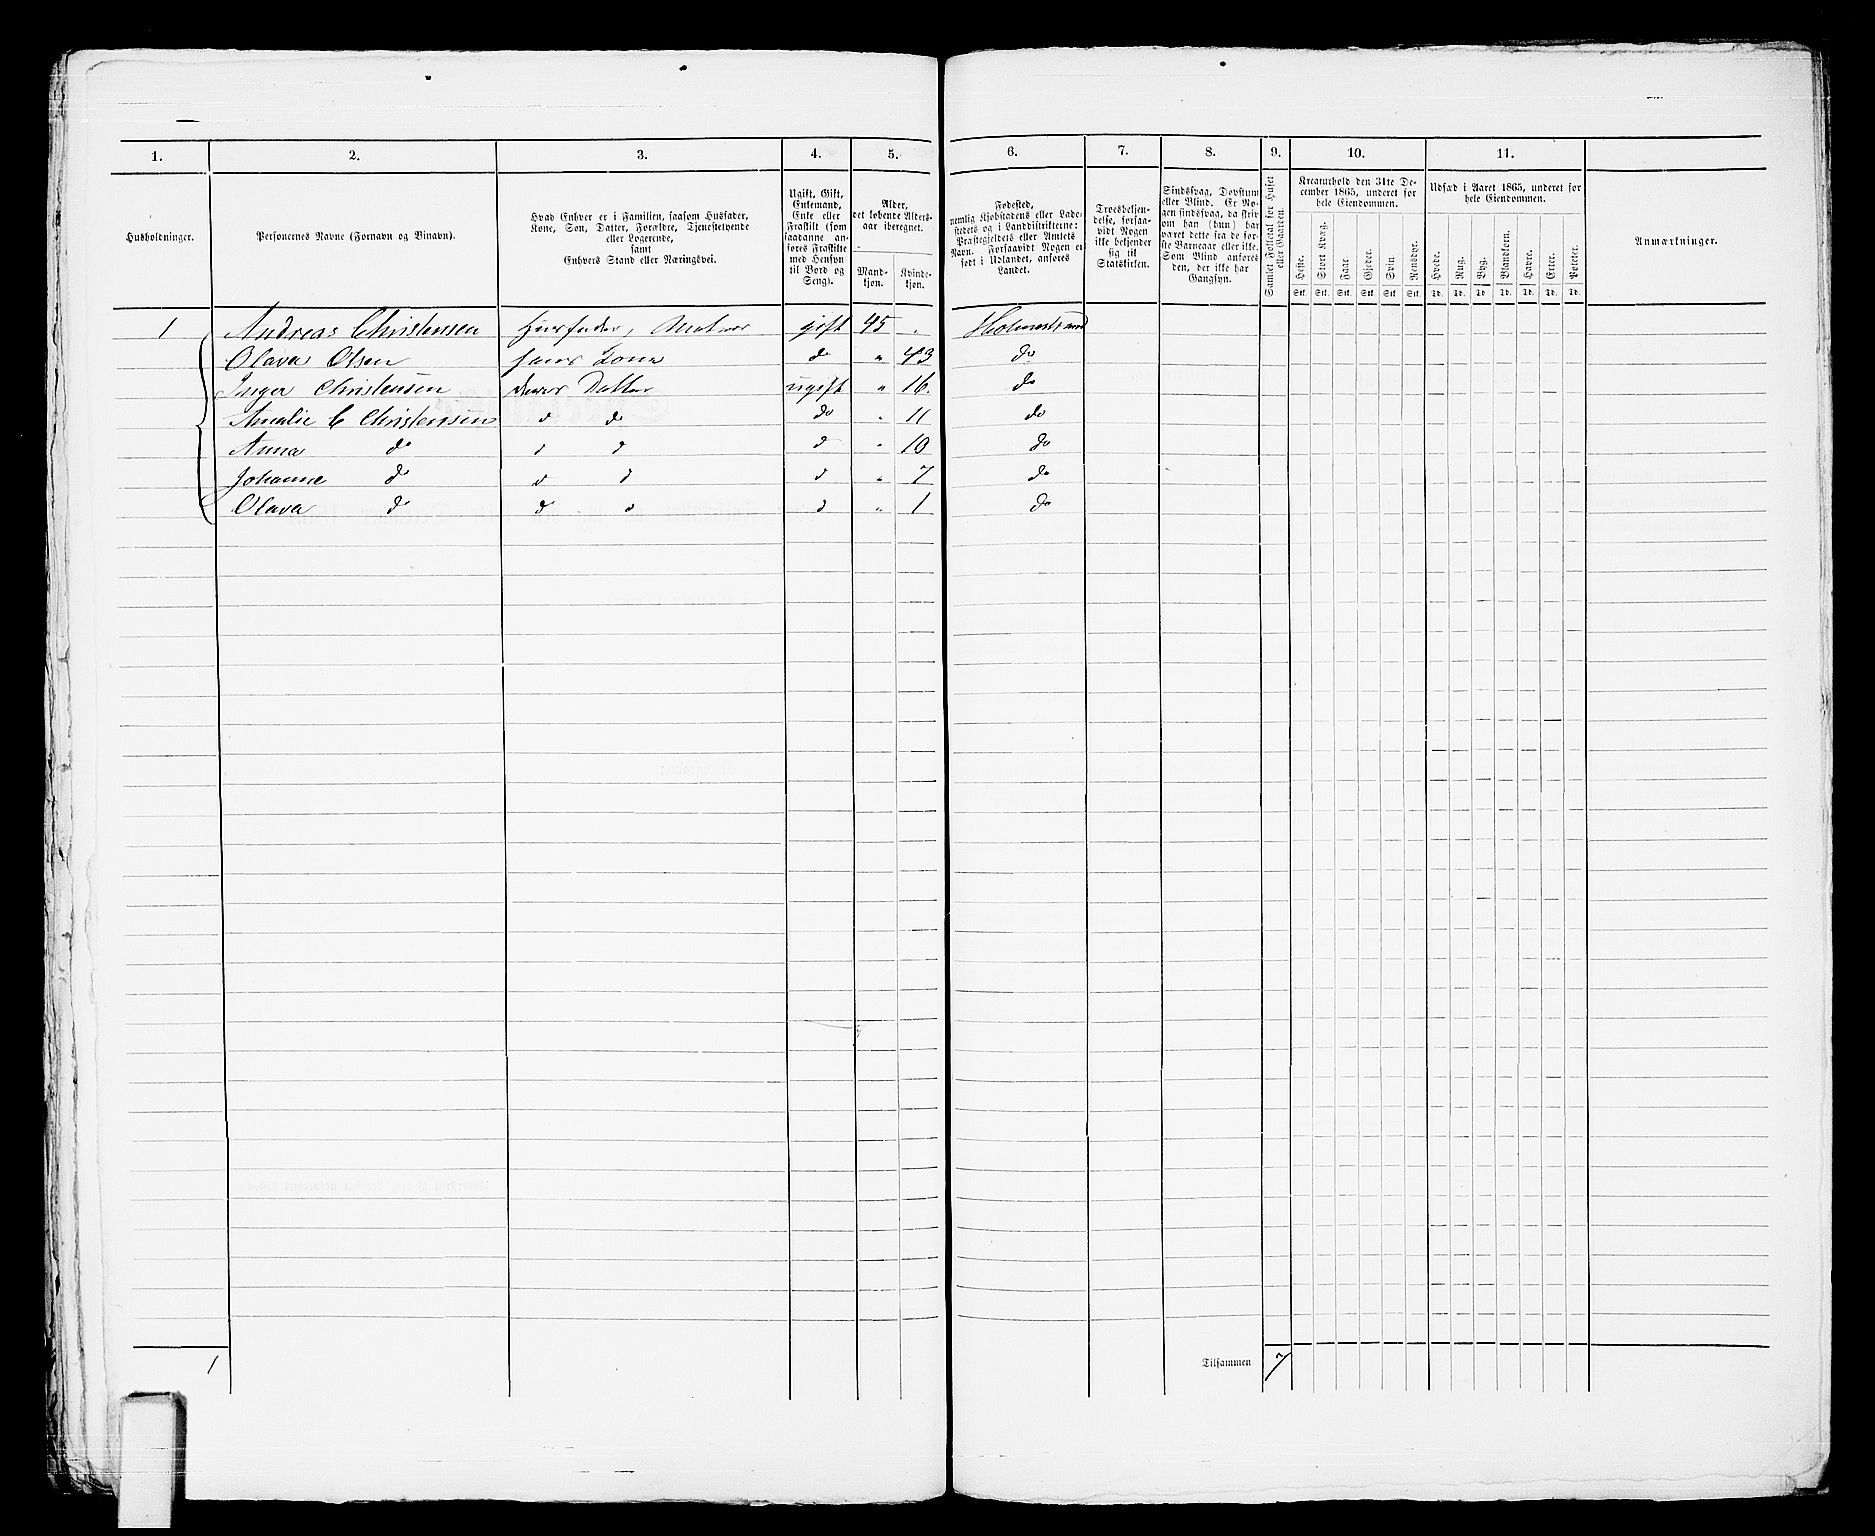 1. 2. 3. 4. 5. 6. 7. 8. 9. 10. 11.
Husholdninger.
Personernes Navne (Fornavn og Binavn).
Hvad Enhver er i Familien, saasom Husfader,
Kone, Søn, Datter, Forældre, Tjenestetyende
eller Logerende,
samt
Enhvers Stand eller Næringsvei.
Ugift, Gift,
Enkemand,
Enke eller
Fraskilt (som
saadanne an-
føres Fraskilte
med Hensyn
til Bord og
Seng).
Alder,
det løbende Alders-
aar iberegnet.
Mand-
kjøn.
Kvinde-
kjøn.
Fødested,
nemlig Kjøbstadens eller Lade-
stedets og i Landdistrikterne:
Præstegjeldets eller Amtets
Navn. Forsaavidt Nogen er
født i Udlandet, anføres
Landet.
Troesbekjen-
delse, forsaa-
vidt Nogen
ikke bekjender
sig til
Statskirken.
Sindssvag, Døvstum
eller Blind. Er No-
gen sindssvag, da skriv
om han (hun) har
været dette fra de før-
ste Barneaar eller ikke.
Som Blind anføres
den, der ikke har
Gangsyn.
Samlet Folketal for Huset
eller Gaarden.
Kreaturhold den 31te De-
cember 1865, underet for
hele Eiendommen.
Heste. Stort Kvæg. Faar. Gjeder. Svin. Rensdyr.
Stk. Stk. Stk. Stk. Stk. Stk.
Udsæd i Aaret 1865, underet for
hele Eiendommen.
Hvede. Rug. Byg. Blandkorn. Havre. Erter. Poteter.
Td. Td. Td. Td. Td. Td. Td.
Anmærkninger.
1 Andreas Christensen Husfader, Matros gift 45 . Holmestrand
Olava Olsen hans Kone do " 43 do
Inger Christensen deres Datter ugift " 16. do
Amalie C Christensen d do do " 11 do
Anna do d d d " 10 do
Johanne do d d d " 7 do
Olava do d d d " 1 do
1 Tilsammen 7